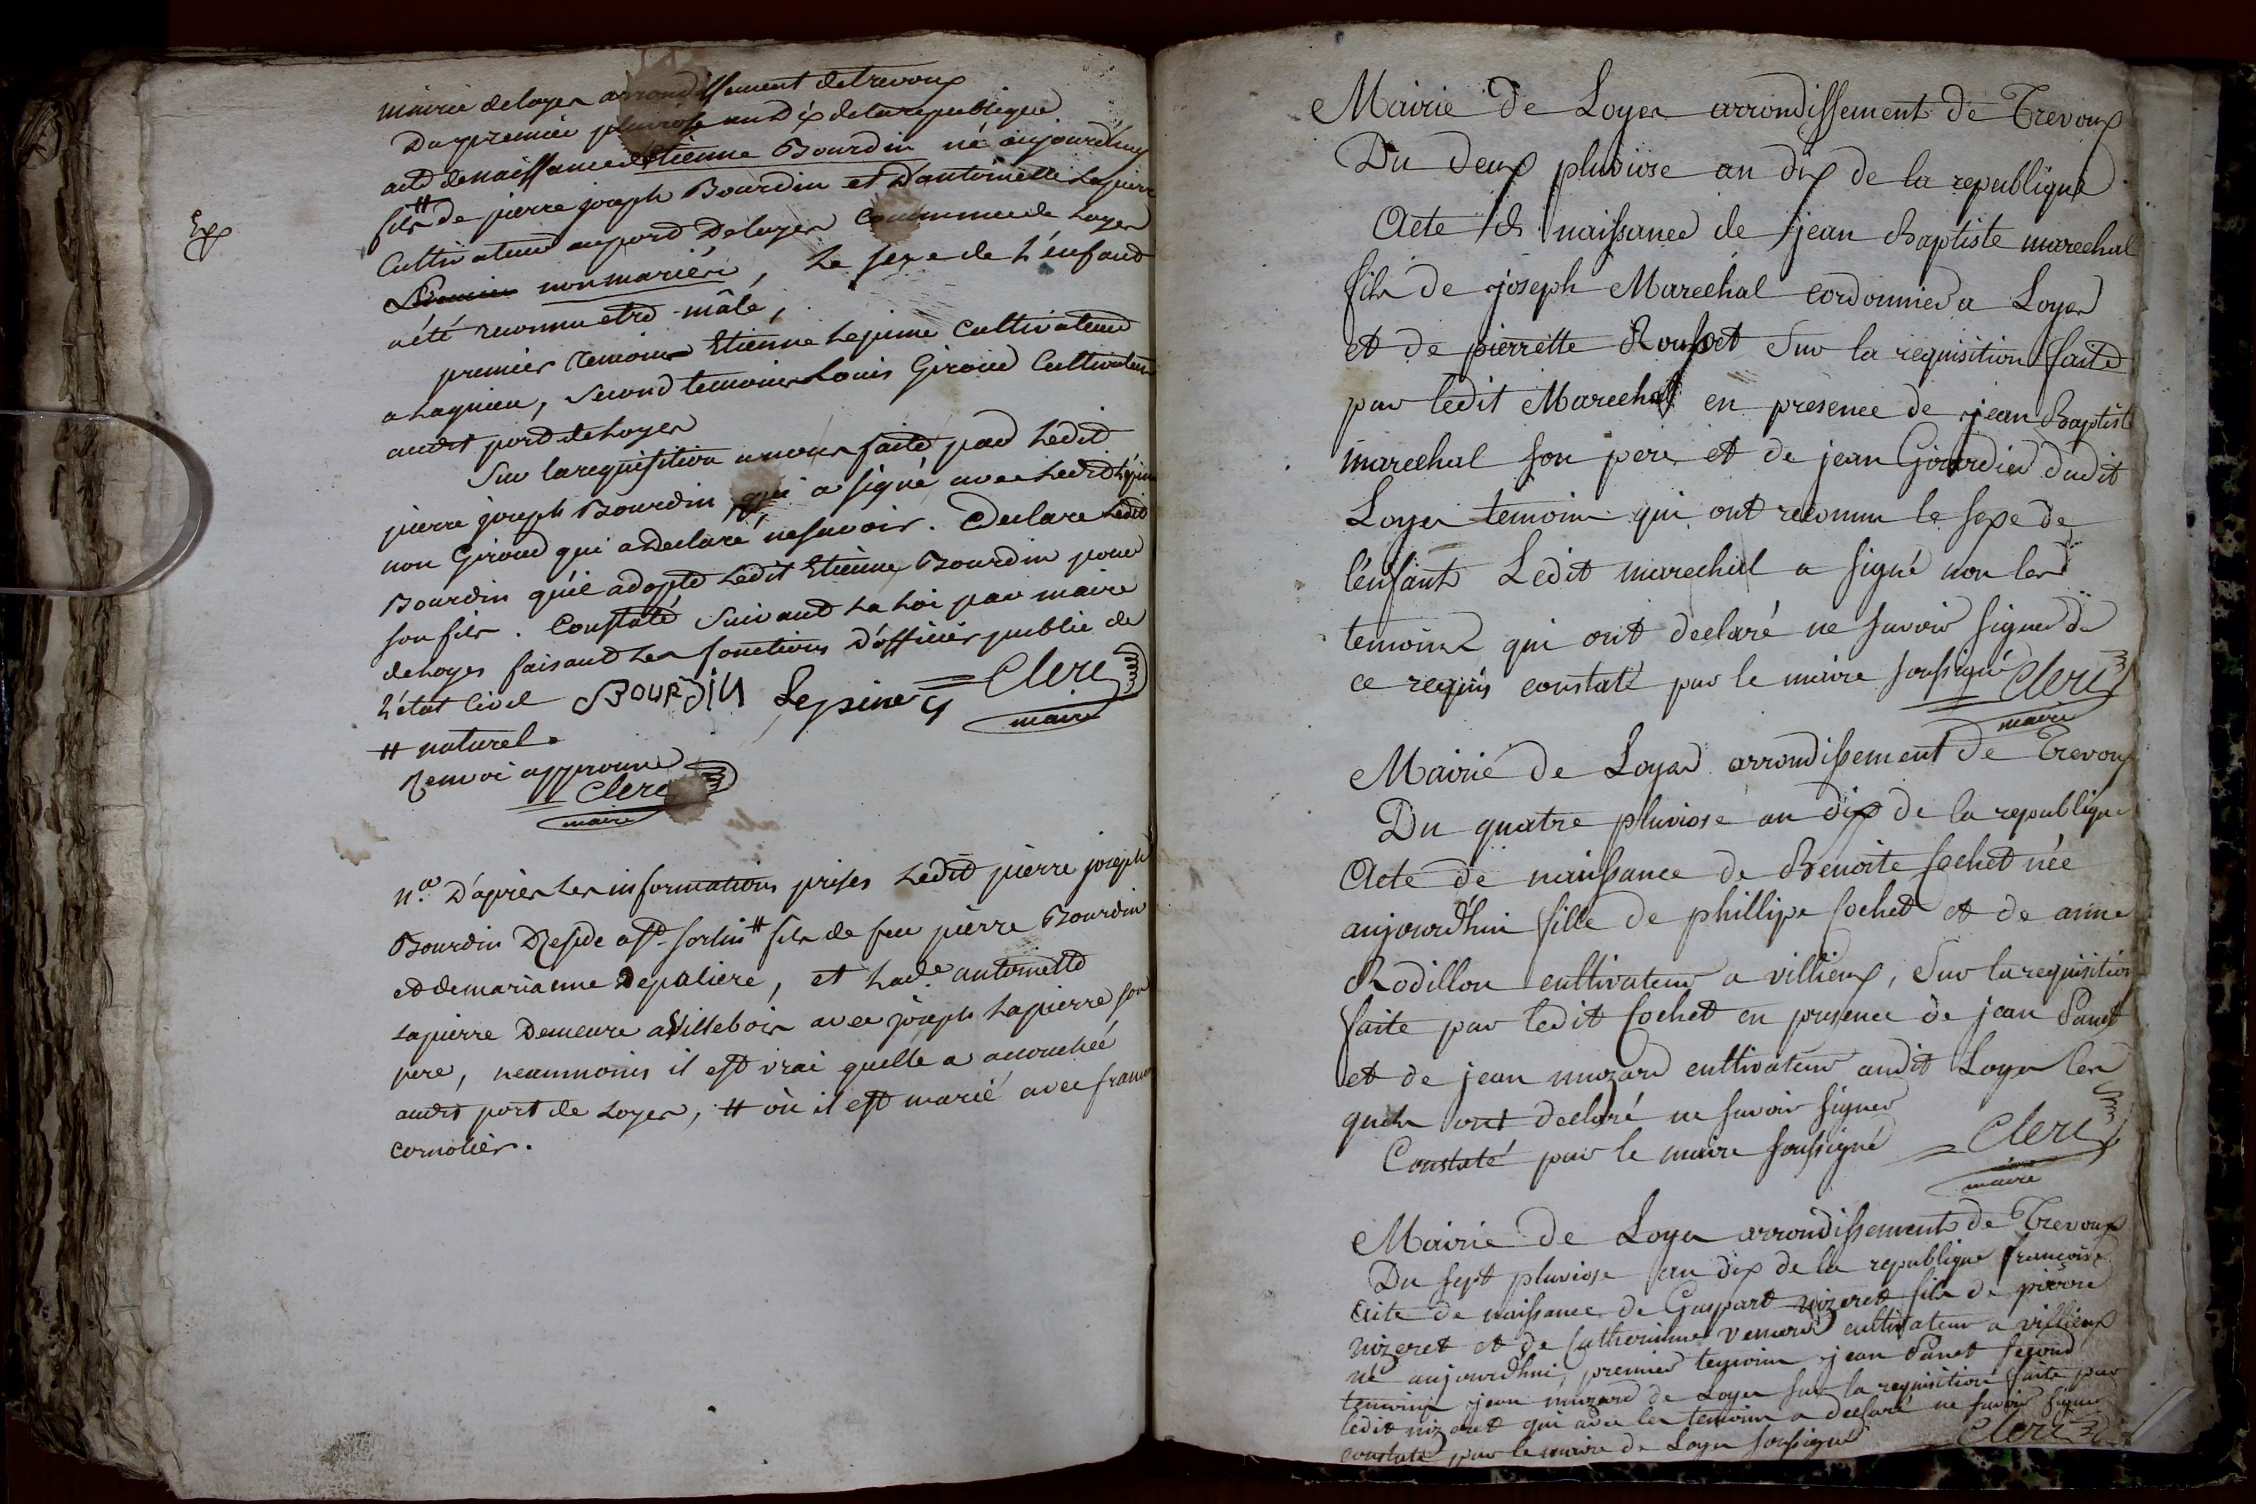 mairie de loyes arrondissement de trevoux
Du premier pluviose an Dix de la republique
acte de naissance d'Etienne Bourdin né aujourd'huy
fils # de pierre joseph Bourdin et D'antoinette Lapierre
Cultivateur au port De loyes Commune de Loyes
non mariés, Le sexe de L'enfant
a été reconnu etre mâle,
premier temoin Etienne Lepine Cultivateur
a Lagnieu, second temoins Louis Giroud Cultivateur
audit port de Loyes
Sur la requisition a nous faite par Ledit
pierre joseph Bourdin qui a signé avec Ledit Lépine
non Giroud qui a Declaré ne savoir. Declare Ledit
Bourdin qu'il adopte Ledit Etienne Bourdin pour
son fils. Constaté Suivant La Loi par maire
de Loyes faisant Les fonctions D'officier public de
L'état Civil BOURDIN Lepine Clerc
maire
# naturel.
Renvoi approuvé
Clerc
maire
Exp
n.a D'apries Les informations prises Ledit pierre joseph
Bourdin Reside a St Sorlin # fils de feu pierre Bourdin
et de marianne Depaliere, et Lad.e antoinette
Lapierre Demeure a Villebois avec joseph Lapierre son
pere, neanmoins il est vrai quelle a accouchée
audit port de Loyes, # où il est marié avec
cornolier.
Mairie de Loyes arrondissement de Trevoux
Du deux pluviose an dix de la republique
Acte de naissance de jean Baptiste marechal
fils de joseph Marechal cordonnier a Loyes
et de pierrette Rousset Sur la requisition faite
par ledit Marechal en presence de jean Baptiste
marechal son pere et de jean Girardier dudit
Loyes temoins qui ont reconnu le sexe de
l'enfant Ledit marechal a signé non les
temoins qui ont declaré ne savoir signer de
ce requis constaté par le maire soussigné Clerc
maire
Mairie de Loyes arrondissement de Trevoux
Du quatre pluviose an dix de la republique
Acte de naissance de Benoite Cochet née
aujourd'hui fille de phillipe Cochet et de anne
Rodillon cultivateur a villieux, Sur la requisition
faite par ledit Cochet en presence de jean Panet
et de jean muzard cultivateur audit Loyes les
quels ont declaré ne savoir signer
Constaté par le maire soussigné Clerc
maire
Mairie de Loyes arrondissement de Trevoux
Du sept pluviose an dix de la republique françoise
acte de naissance de Gaspart nizeret fils de pierre
nizeret et de Catherinne venard cultivateur a villieux
né aujourd'hui, premier temoin jean Panet second
temoins jean muzard de Loyes sur la requisition faite par
ledit nizeret qui avec les temoins a declaré ne savoir signer
constaté par le maire de Loyes soussigné Clerc